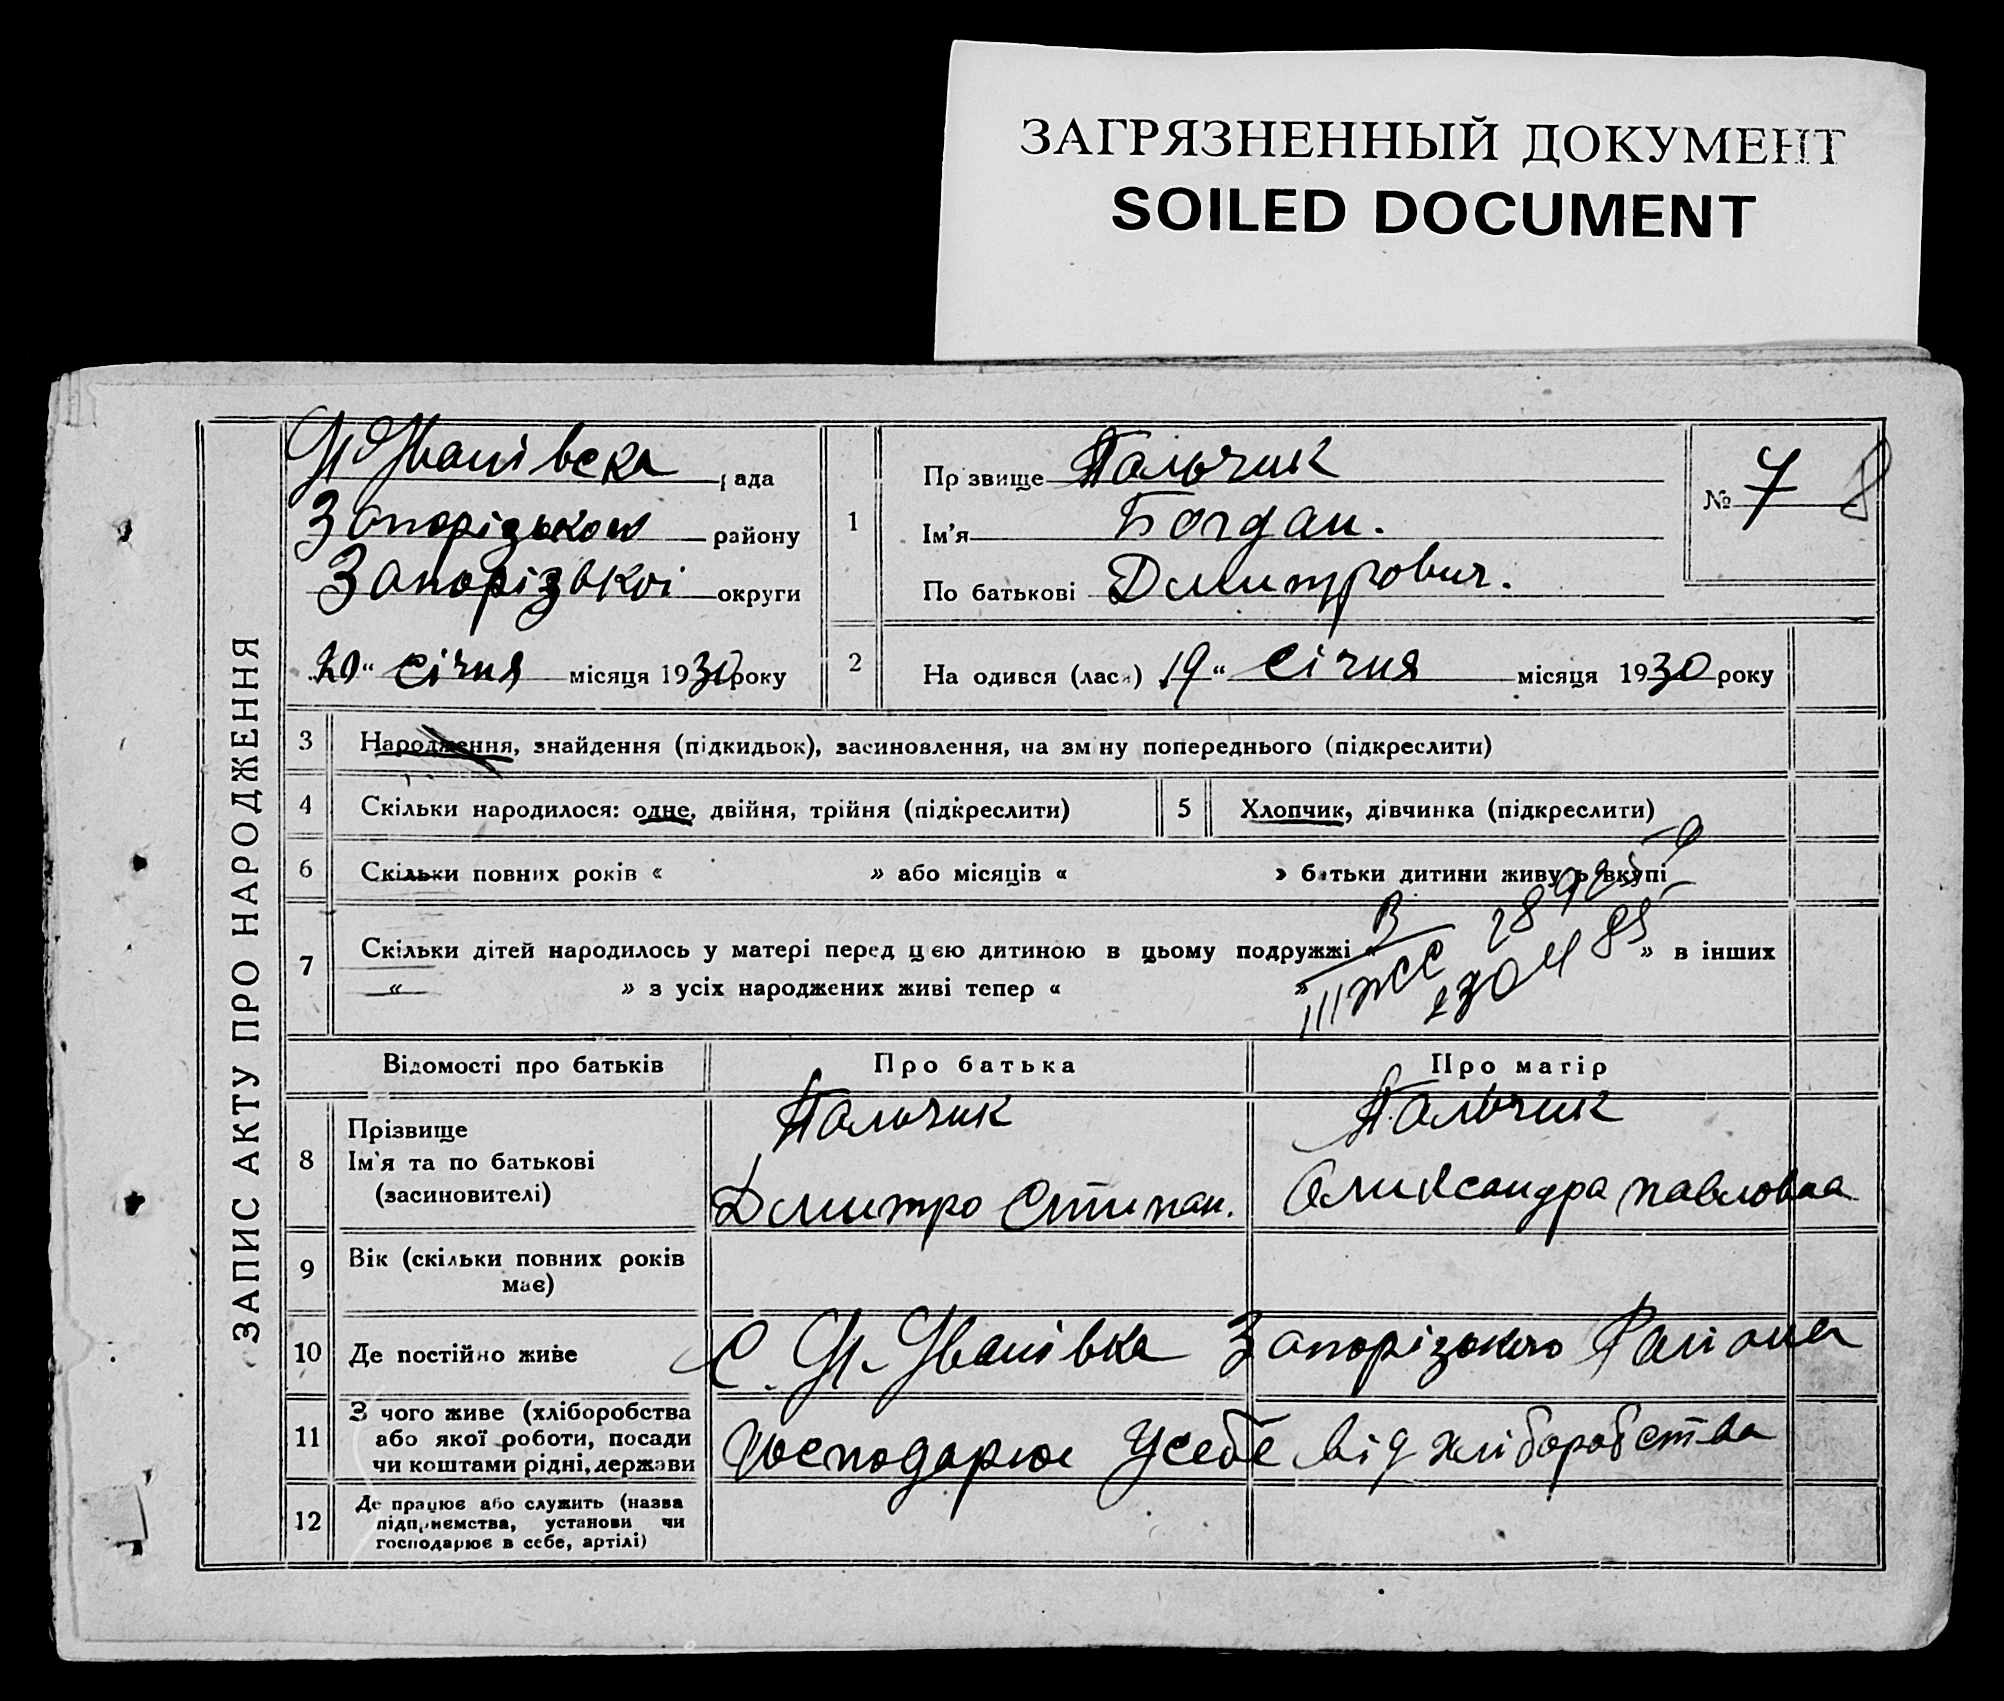 ЗАГРЯЗНЕННЫЙ ДОКУМЕНТ
SOILED DOCUMENT
ЗАПИС АКТУ ПРО НАРОДЖЕННЯ
Н Иванівска рада
Запорізького району
Запорізької округи
20 “ січня місяця 1930 року
1
Прізвище Пальчик
Ім'я Богдан.
По батькові Дмитрович.
№ 7
8
2
Народився (лася) 19 “ січня місяця 1930 року
3 Народження, знайдення (підкидьок), засиновлення, на зміну попереднього (підкреслити)
4 Скільки народилося: одне, двійня, трійня (підкреслити)
5 Хлопчик, дівчинка (підкреслити)
6 Скільки повних років « » або місяців « » батьки дитини живуть вкупі
7 Скільки дітей народилось у матері перед цією дитиною в цьому подружжі « » в інших
« » з усіх народжених живі тепер « »
Відомості про батьків Про батька Про матір
8 Прізвище
Ім'я та по батькові
(засиновителі)
Пальчик
Дмитро Степан.
Пальчик
Олександра Павловна
9 Вік (скільки повних років
має)
10 Де постійно живе
С. Н. Иванівка Запорізького Району
11 З чого живе (хліборобства
або якої роботи, посади
чи коштами рідні, держави
Господарює Усебе від хліборобства
12 Де працює або служить (назва
підприємства, установи чи
господарює в себе, артілі)